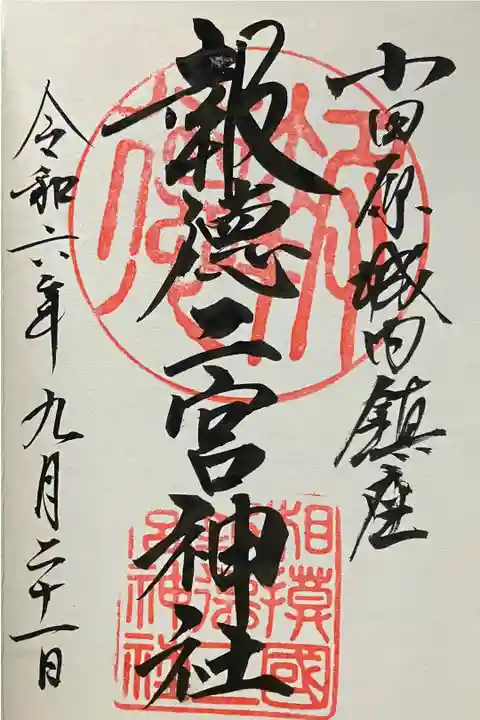 小田原城内鎮座
報徳二宮神社
令和六年九月二十一日
相模國
報徳二
宮神社